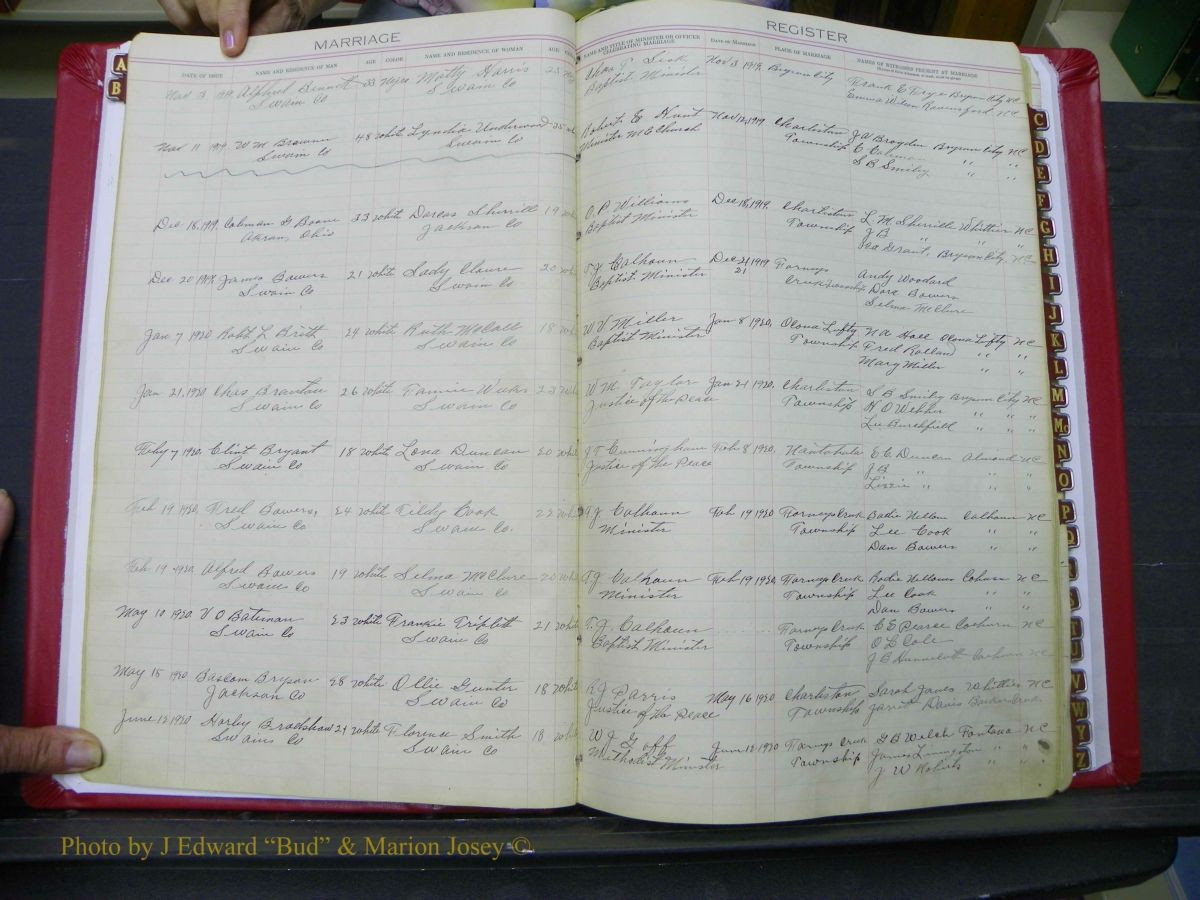 MARRIAGE
REGISTER
DATE OF ISSUE NAME AND RESIDENCE OF MAN AGE COLOR NAME AND RESIDENCE OF WOMAN AGE
NAME AND TITLE OF MINISTER OR OFFICER CELEBRATING MARRIAGE DATE OF MARRIAGE PLACE OF MARRIAGE NAMES OF WITNESSES PRESENT AT MARRIAGE
Nov 3 1919 Alphred Bennett 33 Negro Matty Harris 25
Swain Co Swain Co
Chas T. Sisk Nov 3 1919 Bryson City Frank E Frye Bryson City NC
Baptist Minister Emma Wilson Ravensford NC
Nov 11 1919 W M Brown 48 white Lyndia Underwood 25
Swain Co Swain Co
Robert E Hunt Nov 12, 1919 Charleston J A Brogden Bryson City NC
Minister M E Church Township E Coleman " "
S B Smiley " "
Dec 18, 1919 Colman G Boone 33 white Dorcas Sherrill 19 white
Akron, Ohio Jackson Co
O. P. Williams Dec 18, 1919. Charleston L M Sherrill Whittier NC
Baptist Minister Township J B " " "
Grant, Bryson City, NC
Dec 20 1919 James Bowers 21 white Lady Clonre 20 white
Swain Co Swain Co
T J Calhoun Dec 21 1919 Forneys Andy Woodard
Baptist Minister 21 Creek Township Dora Bowers
Selma McClure
Jan 7 1920 Robt L Britt 24 white Ruth McCall 18 white
Swain Co Swain Co
W V Miller Jan 8 1920, Ocona Lufty N A Hall Ocona Lufty NC
Baptist Minister Township Fred Rolland " "
Mary Miller " "
Jan 21, 1920 Chas Branton 26 white Fannie Weeks 23 white
Swain Co Swain Co
W M Taylor Jan 21 1920, Charleston S B Smiley Bryson City NC
Justice of the Peace Township H O Webber " "
Lee Burchfield " "
Feby 7 1920, Clint Bryant 18 white Lona Duncan 20 white
Swain Co Swain Co
J T Cunningham Feb 8 1920, Nantahala E E Duncan Almond NC
Justice of the Peace Township J B " "
Lizzie " " "
Feb 19 1920, Fred Bowers, 24 white Tildy Cook 22 white
Swain Co Swain Co.
T J Calhoun Feb 19 1920 Forneys Creek Calhoun NC
Minister Township Lee Cook " "
Dan Bowers " "
Feb 19 1920, Alfred Bowers 19 white Selma McClure 20 white
Swain Co Swain Co
T J Calhoun Feb 19 1920, Forneys Creek NC
Minister Township Lee Cook " "
Dan Bowers " "
May 10 1920 V O Bateman 23 white Frankie Triplett 21 white
Swain Co Swain Co
T. J. Calhoun Forneys Creek C E Pearce Coeburn NC
Baptist Minister Township O L Cole
J B NC
May 15 1920 Bascom Bryson 28 white Ollie Gunter 18 white
Jackson Co Swain Co
R J Parris May 16 1920 Charleston Sarah Jones Whittier NC
Justice of the Peace Township Davis
June 12 1920 Harley Bradshaw 21 white Florence Smith 18 white
Swain Co Swain Co
W J Goff June 12 1920 Forneys Creek G B Welch Fontana NC
Methodist Minister Township James Livingston " "
J W Roberts " "
A
B
C
D
E
F
G
H
I
J
K
L
M
Mc
N
O
P
Q
T
U
V
W
Y
Z
Photo by J Edward “Bud” & Marion Josey ©.